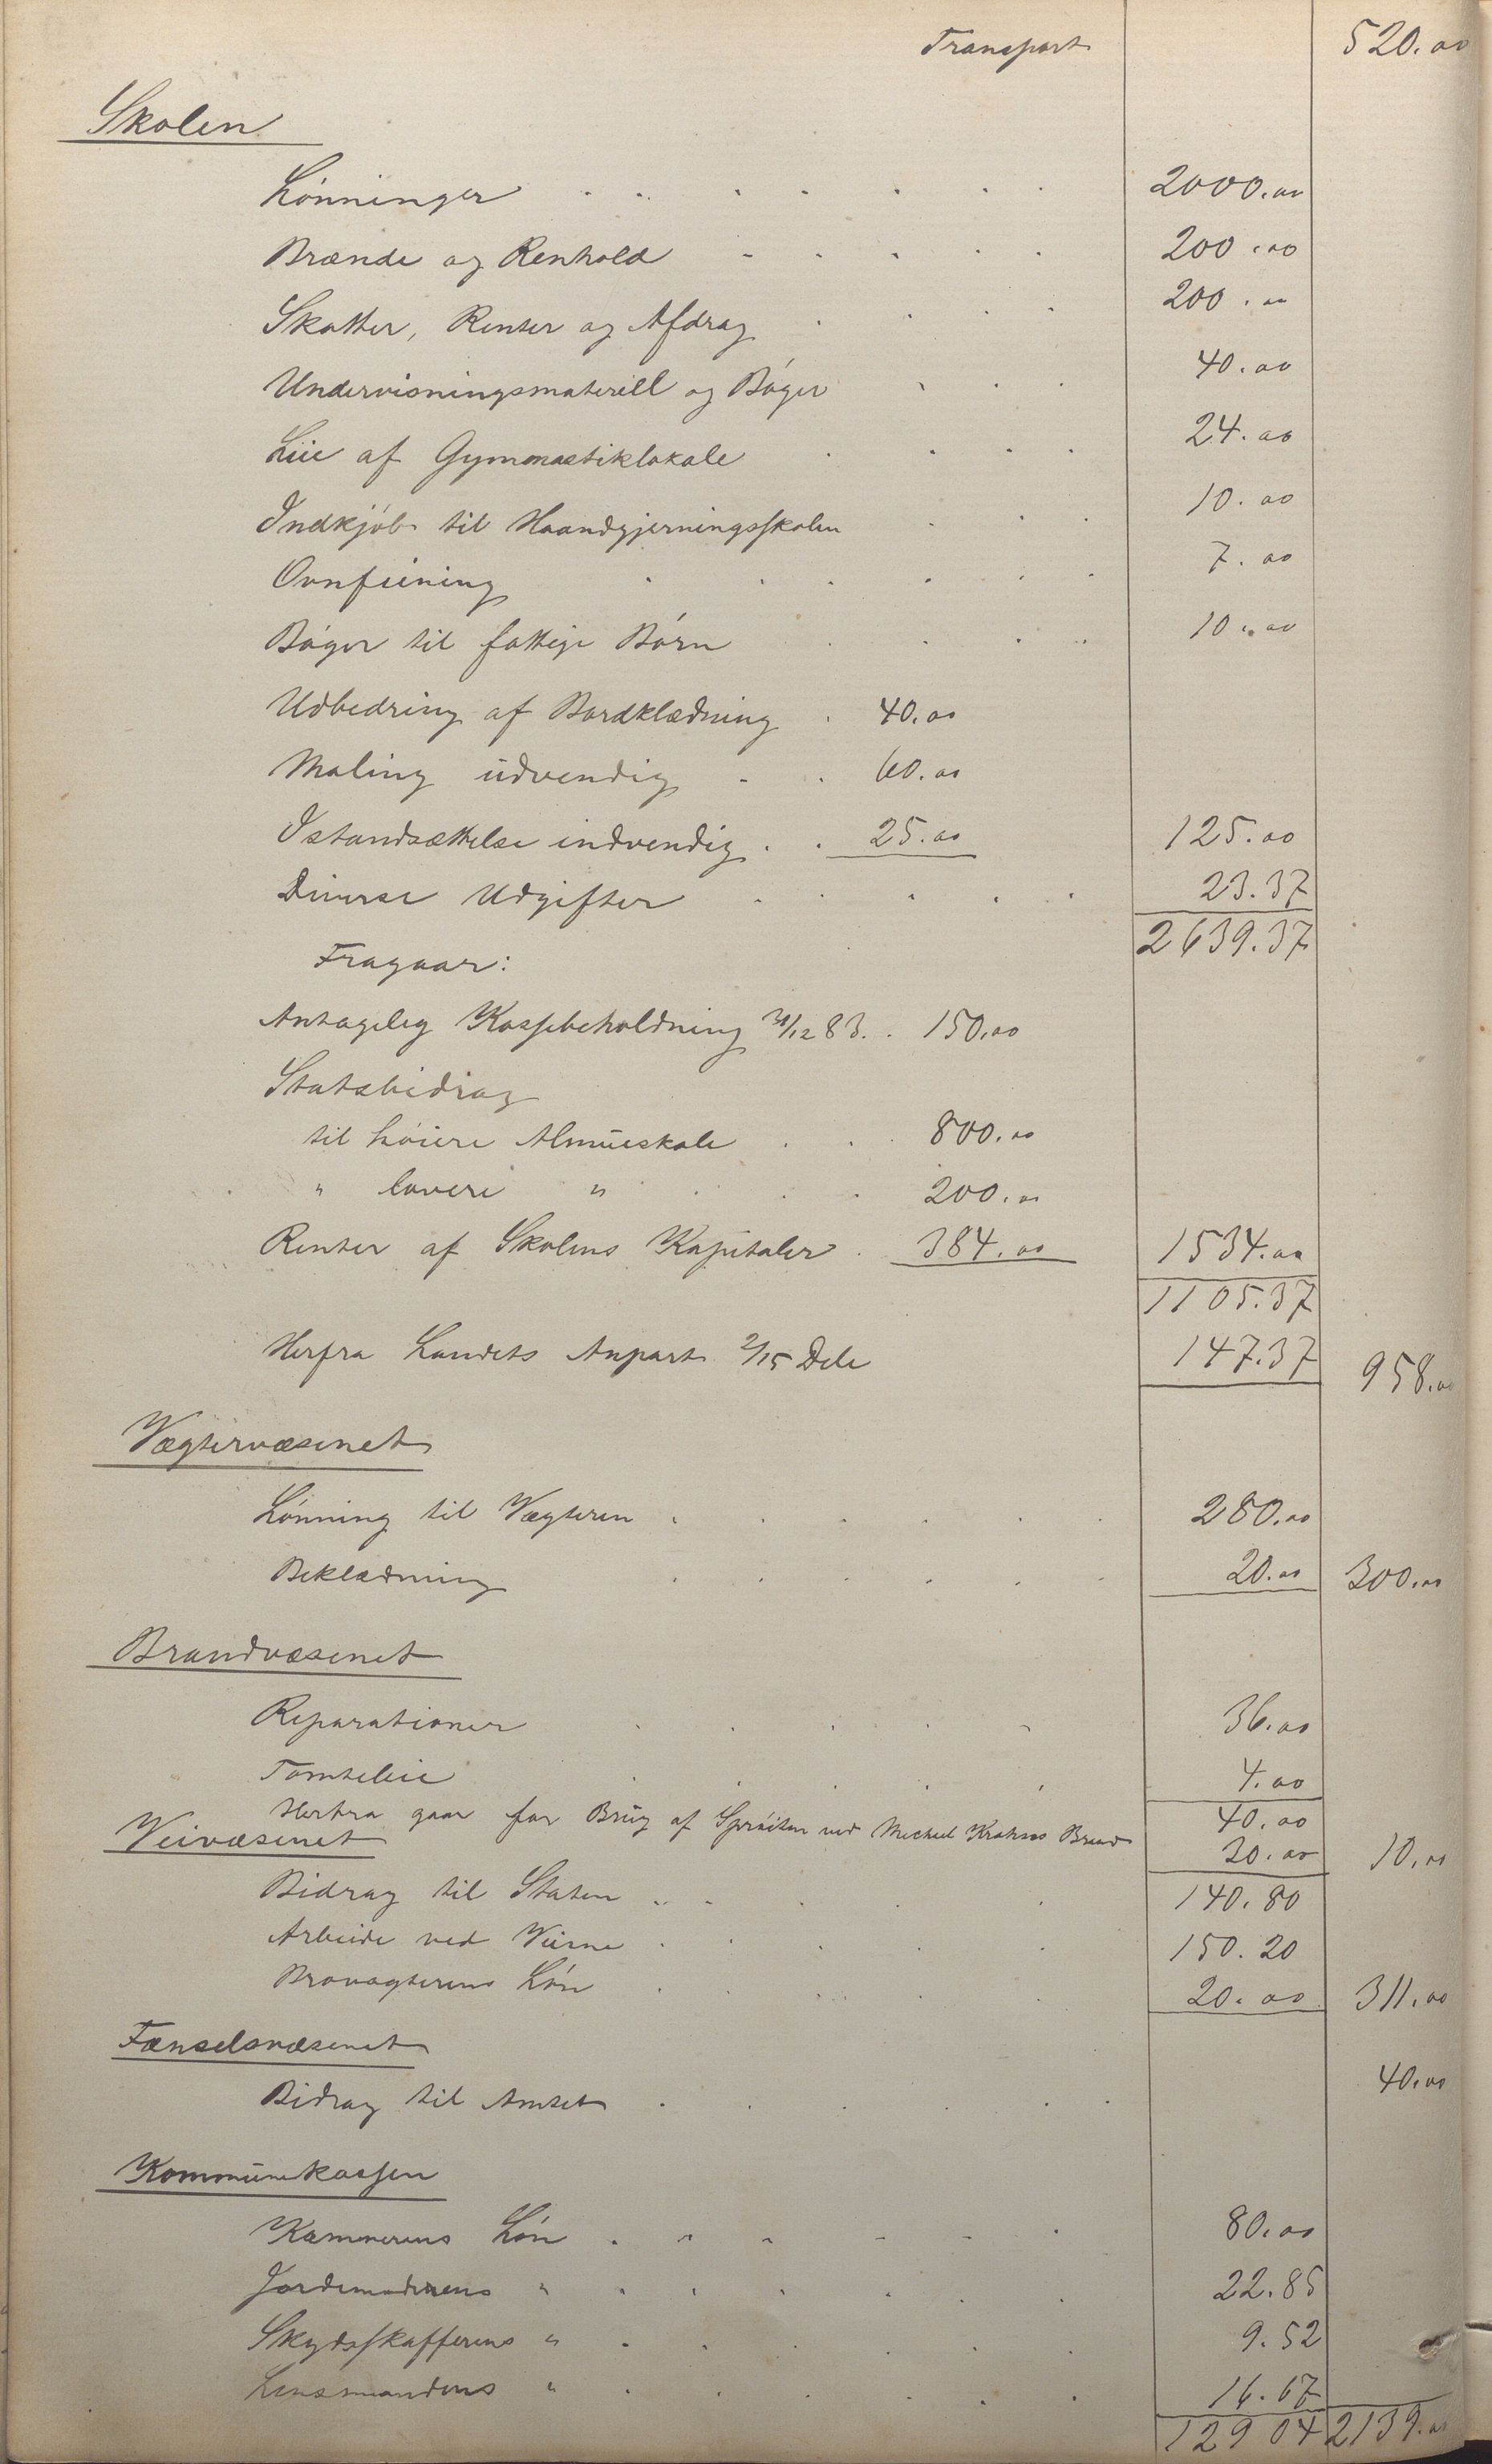 Transport 520.00
Skolen
Lønninger 2000.00
Brænde og Renhold 200.00
Skatter, Renter og Afdrag 200.00
Undervisningsmateriell og Bøger 40.00
Leie af Gymnastiklokale 24.00
Indkjøb til Haandgjerningsskolen 10.00
Ovnfeining 7.00
Bøger til fattige Børn 10.00
Udbedring af Bordklædning 40.00
Maling udvendig 60.00
Istandsættelse indvendig 25.00 125.00
Diverse Udgifter 23.37
2639.37
Fragaar:
Antagelig Kassebeholdning 31/12 83. 150.00
Statsbidrag
til høiere Almueskole 800.00
" lavere " 200.00
Renter af Skolens Kapitaler 384.00 1534.00
1105.37
Herfra Landets Anpart 2/15 Dele 147.37 958.00
Vægtervæsenet
Lønning til Vægteren 280.00
Beklædning 20.00 300.00
Brandvæsenet
Reparationer 36.00
Tomteleie 4.00
40.00
Herfra gaar for Brug af Sprøiten ved Michael Krohns Brand 30.00 10.00
Veivæsenet
Bidrag til Staten 140.80
Arbeide ved Veiene 150.20
Brovagterens Løn 20.00 311.00
Fængselsvæsenet
Bidrag til Amtet 40.00
Kommunekassen
Kæmnerens Løn 80.00
Jordemoderens " 22.85
Skydsskafferens " 9.52
Lensmandens " 16.67
129 04 2139.00